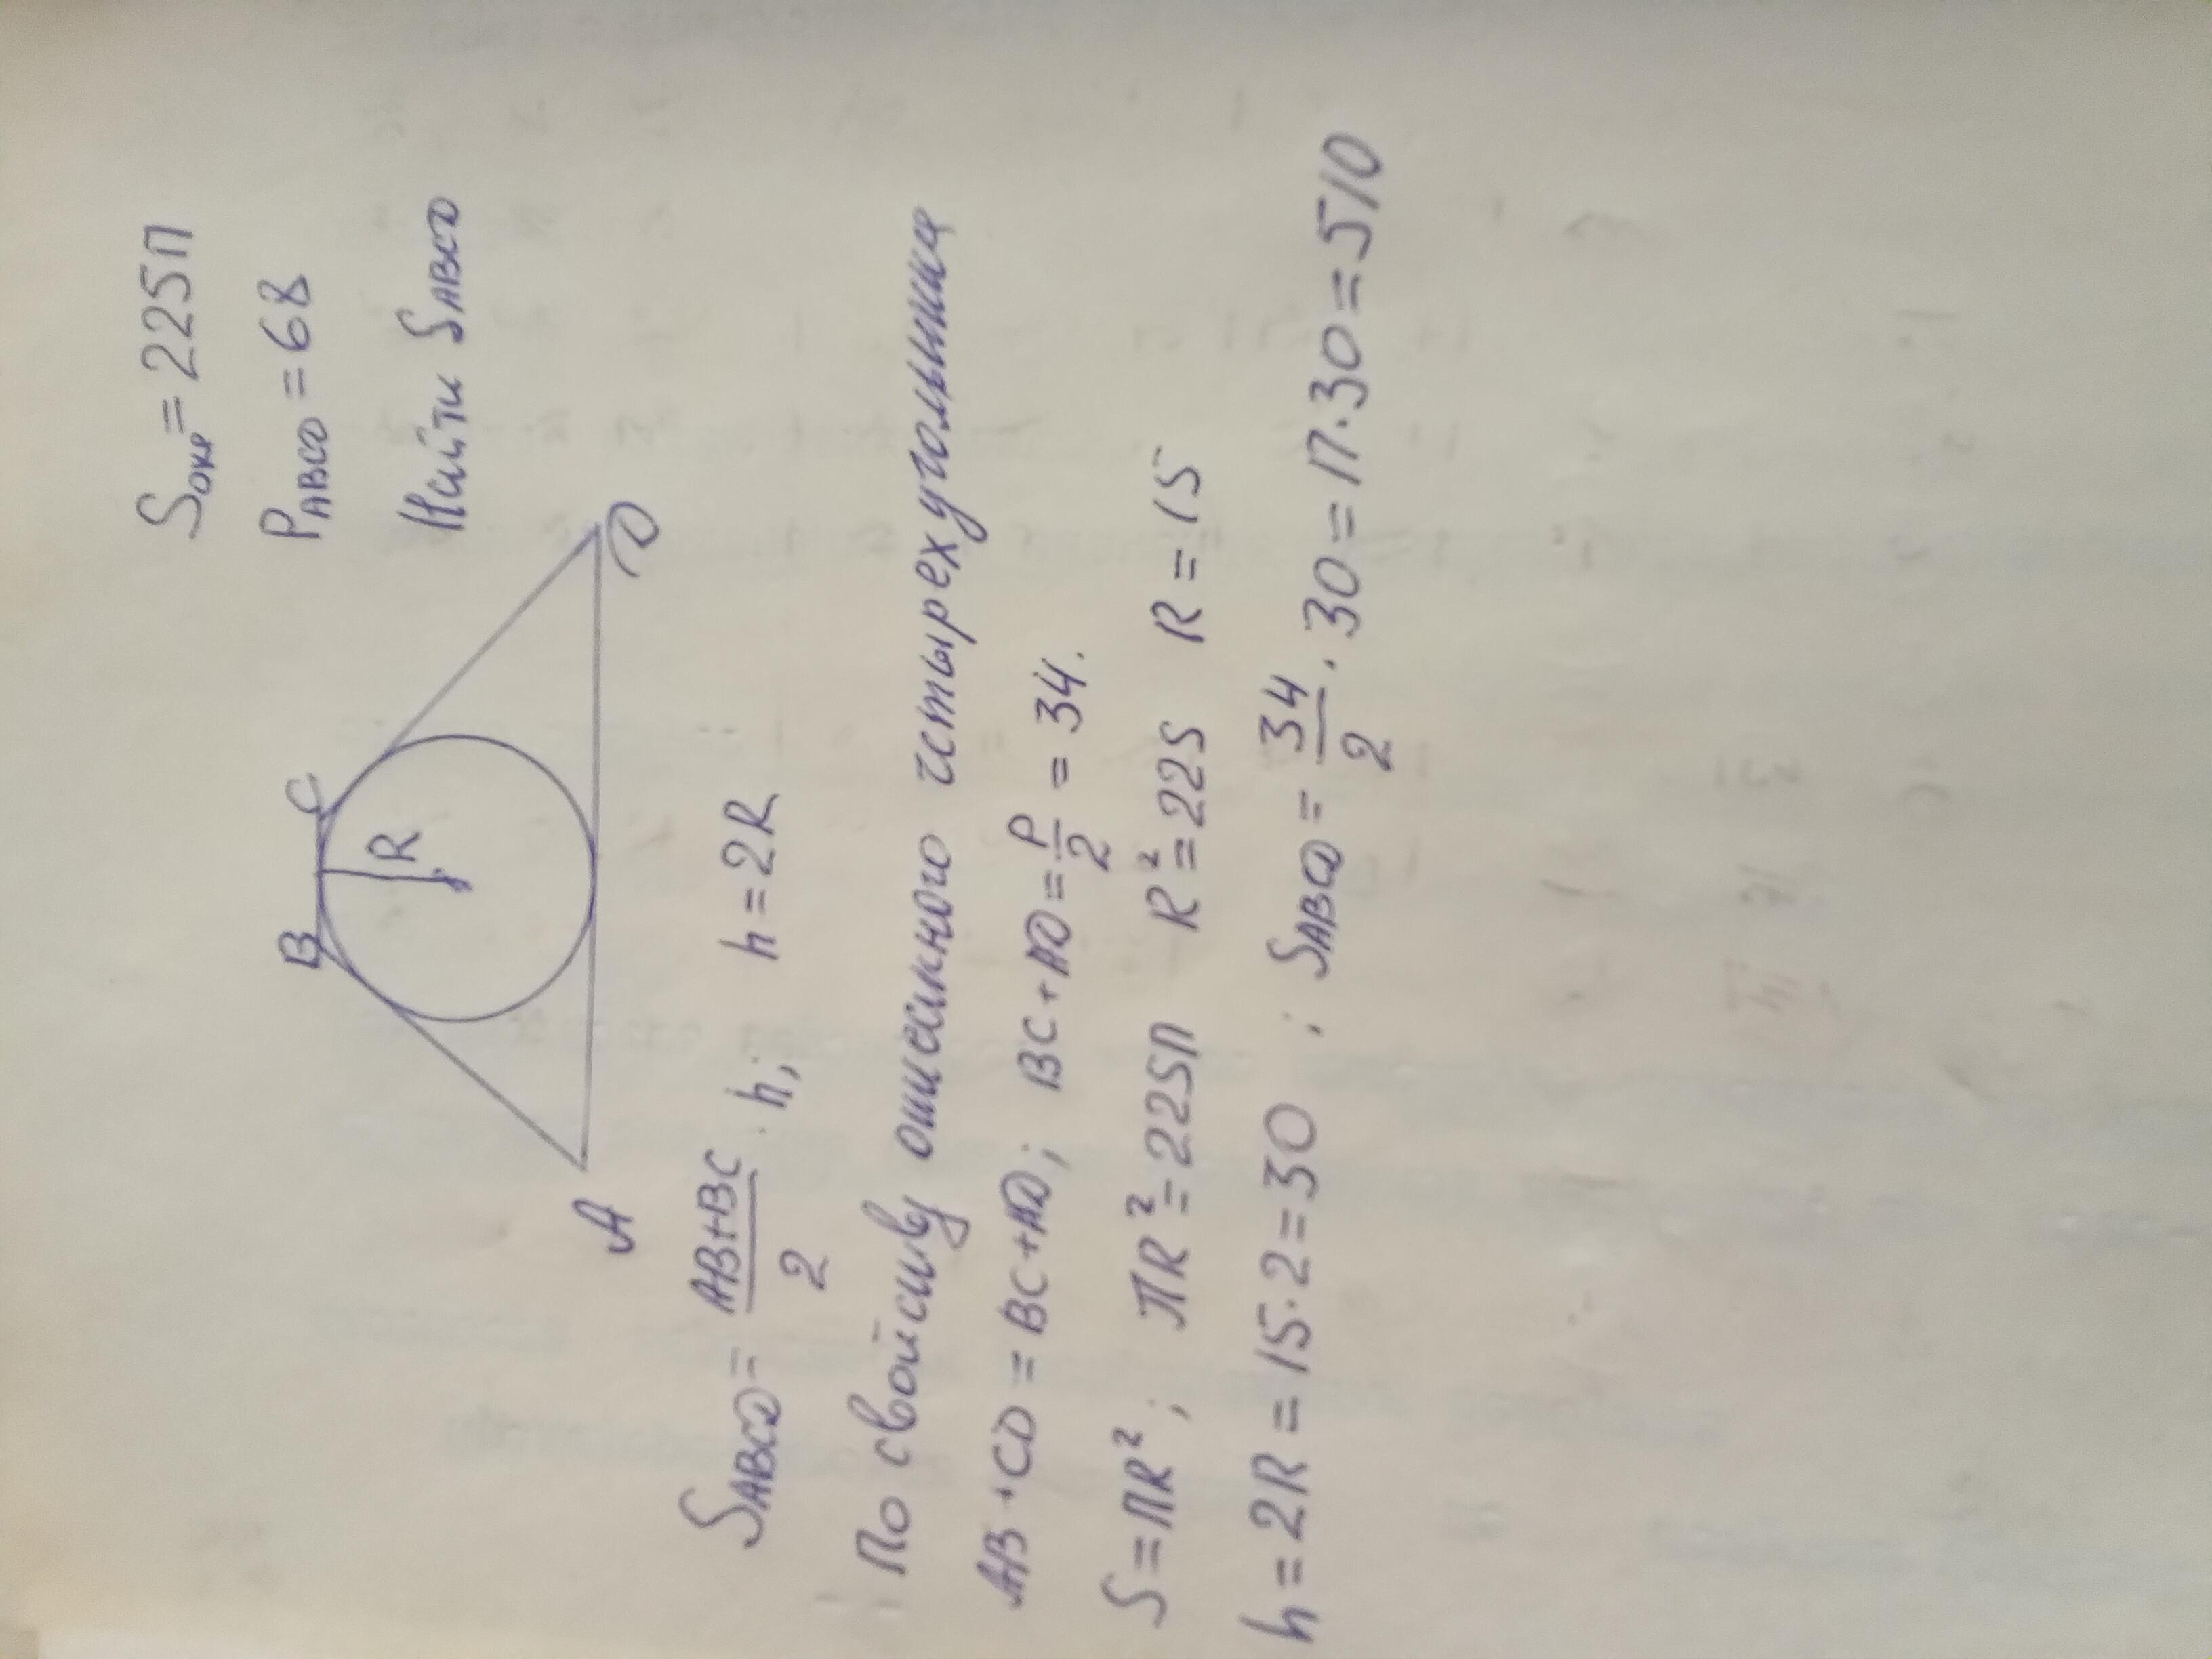 Sокр = 225π
PABCD = 68
Найти SABCD
B C
R
A D
SABCD = AB+BC/2 · h; h = 2R
По свойству описанного четырехугольника
AB + CD = BC + AD; BC + AD = P/2 = 34.
S = πR²; πR² = 225π R² = 225 R = 15
h = 2R = 15 · 2 = 30 ; SABCD = 34/2 · 30 = 17 · 30 = 510